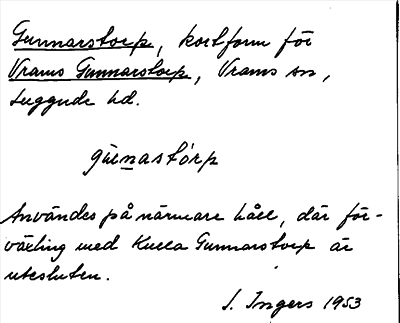 Gunnarstorp, kortform för
Vrams Gunnarstorp, Vrams sn,
Luggude hd.
gúnastórp
Användes på närmare håll, där för-
växling med Kulla Gunnarstorp är
utesluten.
I. Ingers 1953